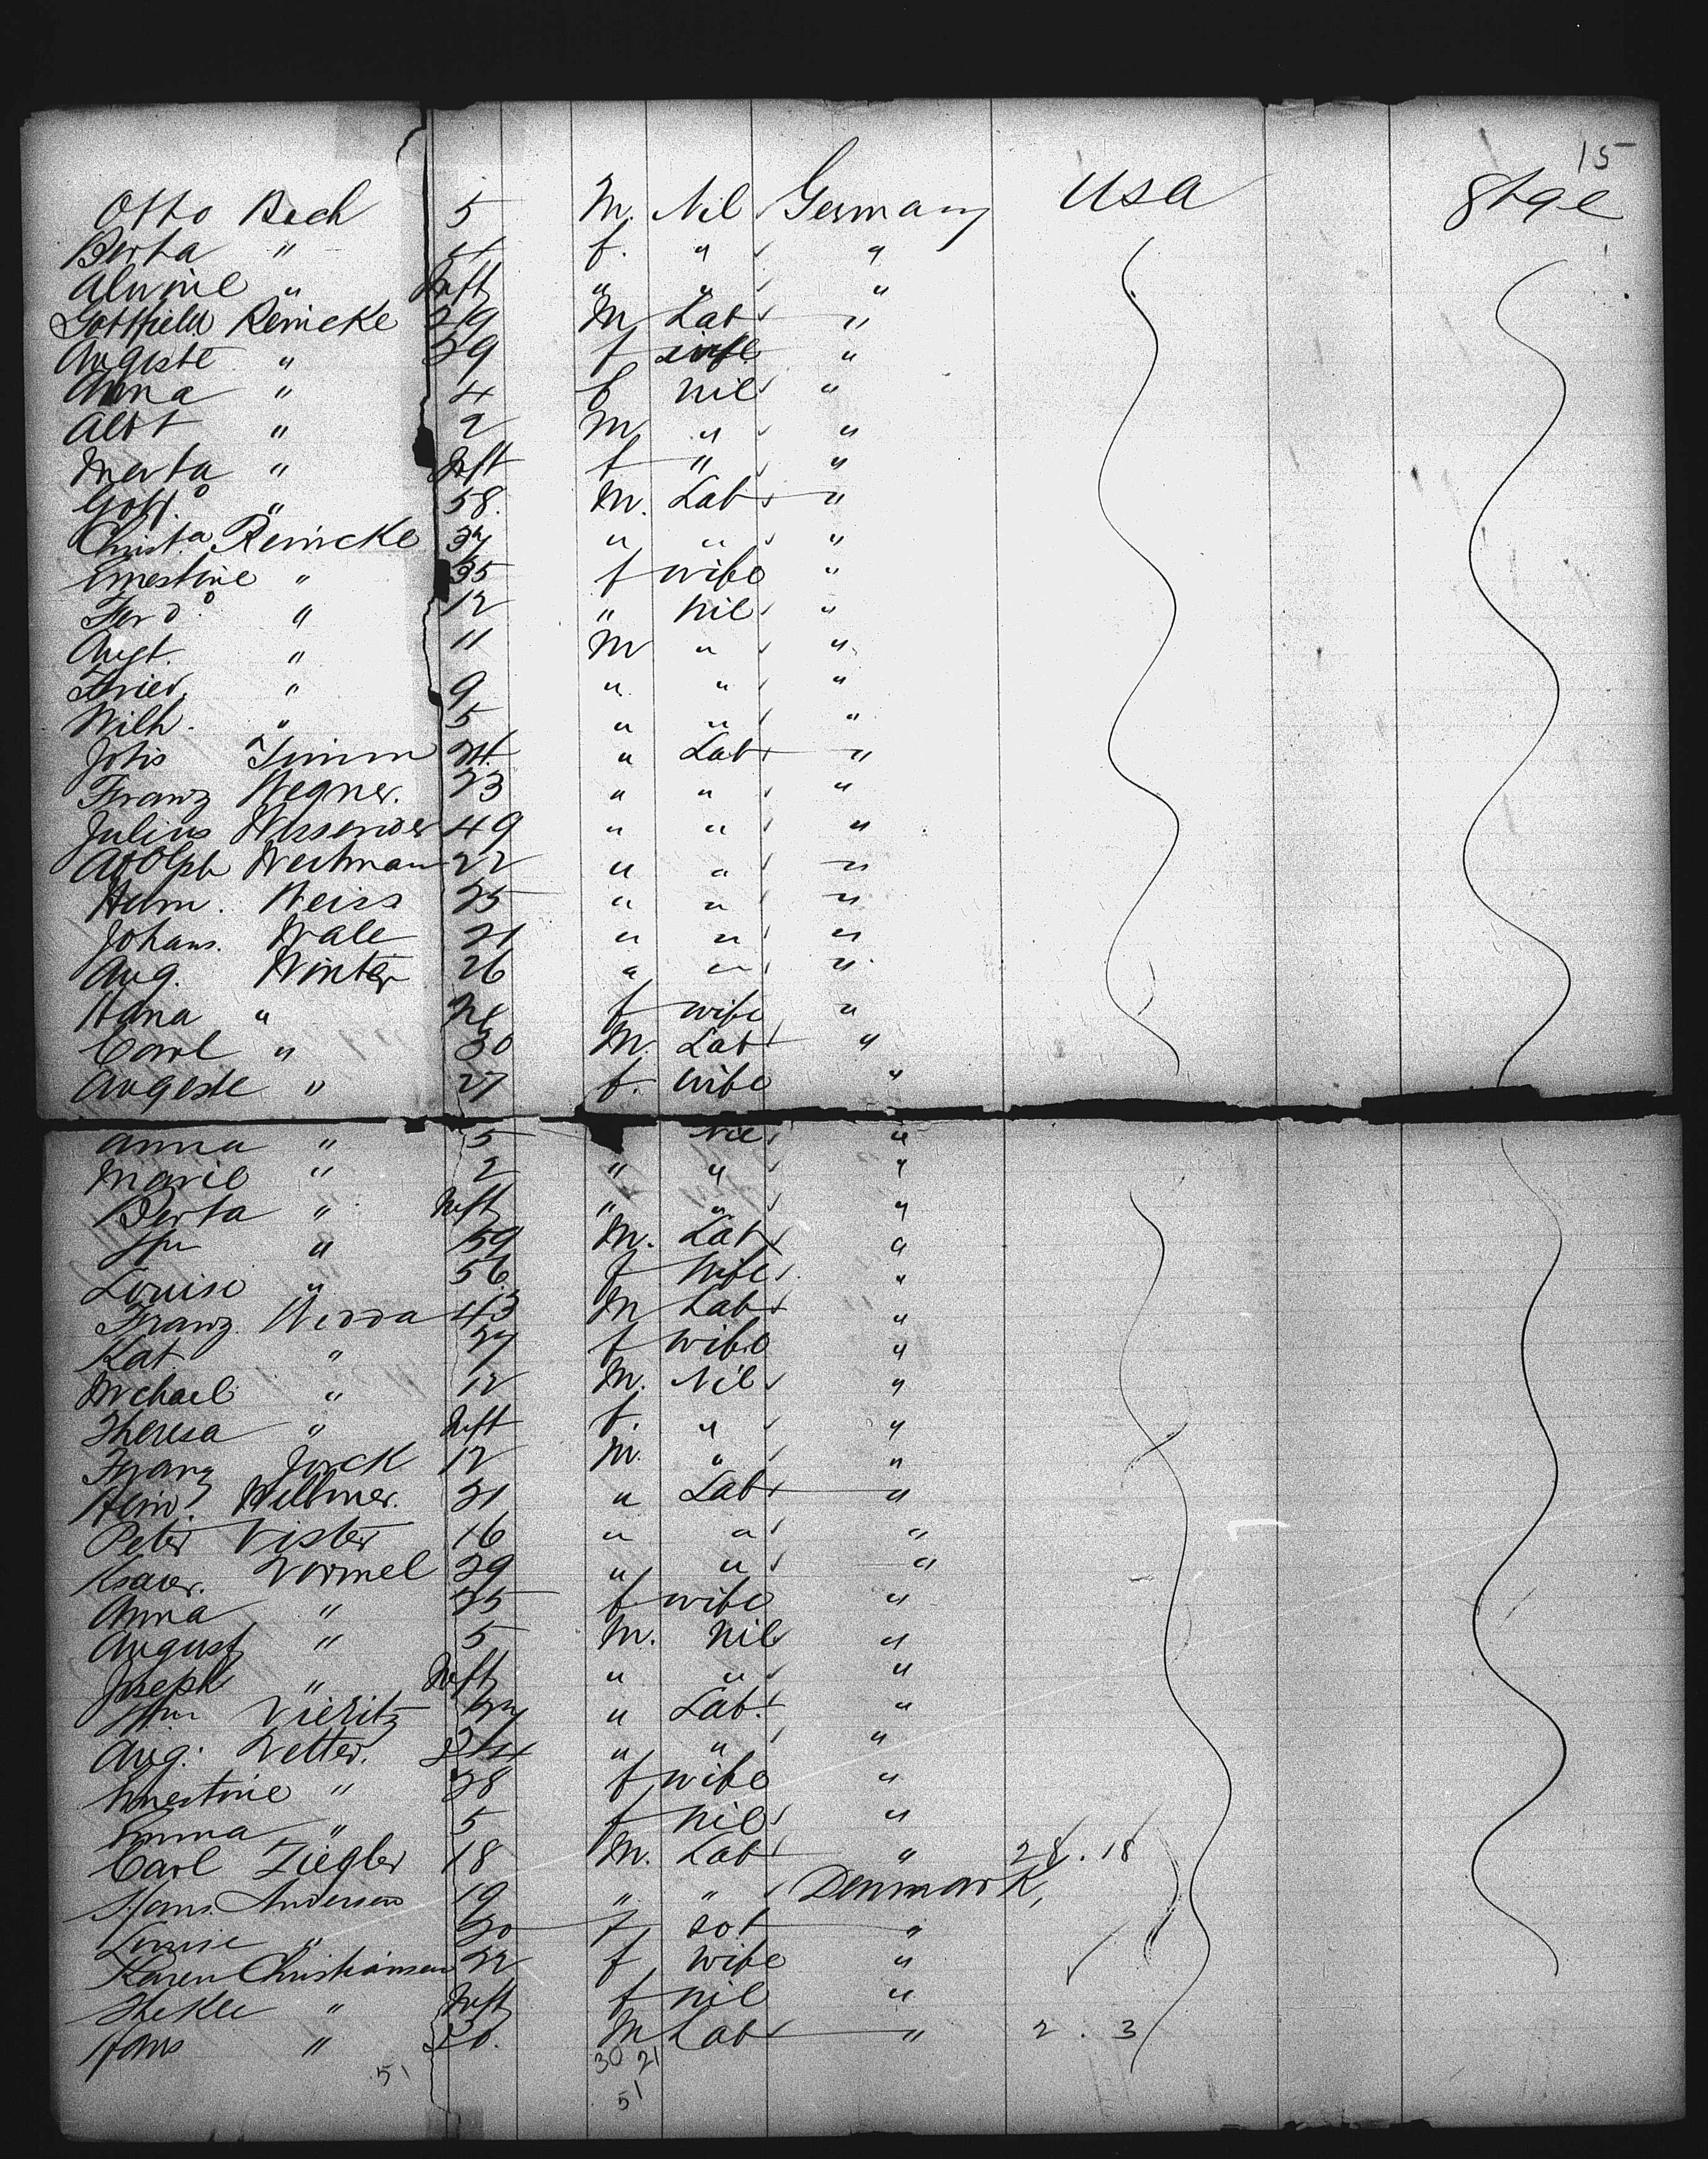 15
Otto Bech 5 M. Nil Germany USA Stge
Berta " 4 f. " "
Alwine " Inft " " "
Gottfield Reinicke 29 M Lab "
Augeste " 29 f wife "
Anna " 4 f nil "
Albt " 2 M " "
Merta " Inft f " "
Gott.o " 58. M. Lab "
Christa Reinicke 37 " " "
Ernestine " 35 f wife "
Ferdo " 12 " nil "
Augt. " 11 M " "
Frier. " 9 " " "
Wilh. " 5 " " "
Johs Timm 24 " Lab "
Franz Wegner. 23 " " "
Julius 49 " " "
Adolph 22 " " "
Weiss 25 " " "
Johans. Wale 21 " " "
Aug. Winter 26 " " "
Hana " f wife "
Carl " 30 M. Lab "
Augeste " 27 f. wife "
Anna " 5 Nil "
Marie " 2 " " "
Berta " Inft " " "
" 59 M. Lab "
Louise " 56 f wife "
Franz Wedda 43 M Lab "
Kat. " 37 f wife "
Michael " 12 M. Nil "
Theresa " Inft f. " "
Franz Jorck 12 M. " "
Hein. Willmer. 31 " Lab "
Peter Vister 16 " " "
Ksaver. Wormel 29 " " "
Anna " 25 f wife "
August " 5 M. nil "
Joseph " Inft " " "
" Lab. "
Aug. Vetter. " " "
Ernestine " 28 f wife "
Emma " 5 f nil "
Carl Ziegler 18 M. Lab " 28. 18
Hans. Andersen 19 " " Denmark,
Louise " 20 f "
Karen Christiansen 22 f wife "
" Inft f nil "
Hans " M Lab " 2. 3
51 30 21
51